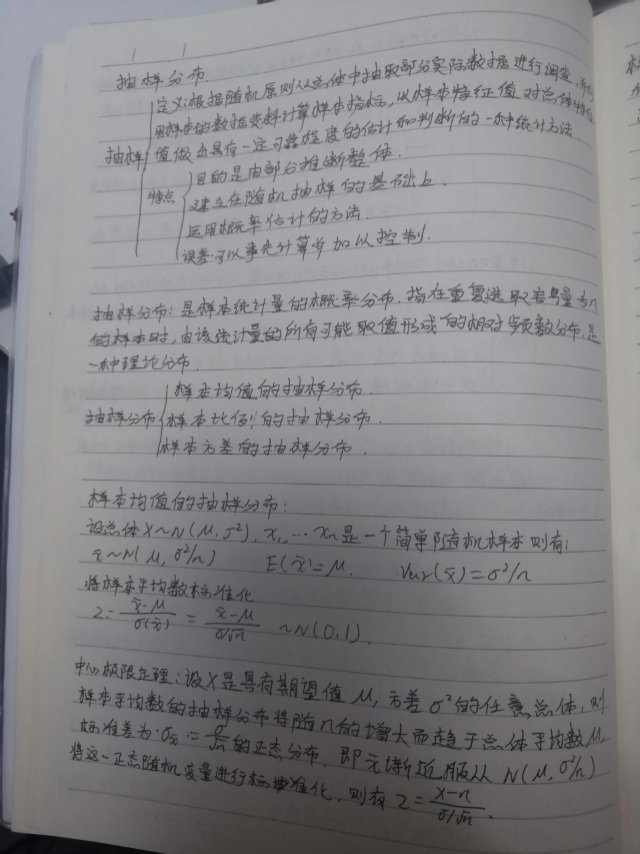 抽样分布.
定义:根据随机原则从总体中抽取部分实际数据进行调查,并
用样本的数据资料计算样本指标,以样本特征值对总体特征
抽样 值做出具有一定可靠程度的估计和判断的一种统计方法.
目的是由部分推断整体.
特点 建立在随机抽样的基础上.
运用概率估计的方法.
误差可以事先计算并加以控制.
抽样分布:是样本统计量的概率分布.指在重复选取容量为n
的样本时,由该统计量的所有可能取值形成的相对频数分布.是
一种理论分布.
样本均值的抽样分布.
抽样分布 样本比例的抽样分布.
样本方差的抽样分布.
样本均值的抽样分布:
设总体X~N(μ,σ²), x₁,…xn是一个简单随机样本则有:
x̄~N(μ,σ²/n) E(x̄)=μ. Var(x̄)=σ²/n
将样本平均数标准化
Z=(x̄-μ)/σ(x̄) = (x̄-μ)/(σ/√n) ~N(0,1).
中心极限定理:设X是具有期望值μ,方差σ²的任意总体,则
样本平均数的抽样分布将随n的增大而趋于总体平均数μ,
标准差为:σx̄ = σ/√n的正态分布.即 渐近服从N(μ,σ²/n)
将这一正态随机变量进行标准化,则有Z=(x-n)/(σ/√n).